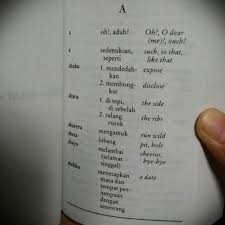 A
a oh!, aduh! Oh!, O dear
(me)!, ouch!
a sedemikian, such, so that,
seperti like that
1. mendedah- expose
kan
2. membong- disclose
kar
1. di tepi, the side
di sebelah
2. tulang the ribs
rusuk
mengamuk run wild
lubang pit, hole
melambai cheerio,
(selamat bye-bye
tinggal)
menetapkan a date
masa dan
tempat per-
jumpaan
dengan
seseorang